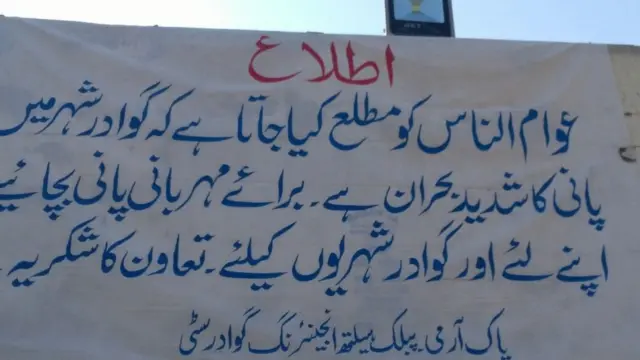 اطلاع
عوام الناس کو مطلع کیا جاتا ہے کہ گوادر شہر میں
پانی کا شدید بحران ہے۔ برائے مہربانی پانی بچائیے
اپنے لئے اور گوادر شہریوں کیلئے۔ تعاون کا شکریہ۔
پاک آرمی۔ پبلک ہیلتھ انجینئرنگ گوادر سٹی